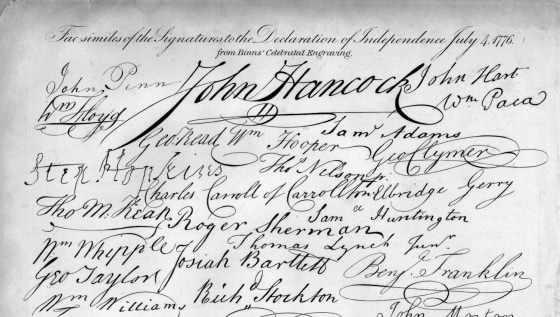 Fac similes of the Signatures to the Declaration of Independence July 4. 1776.
from Binns' Celebrated Engraving.
John Penn John Hancock John Hart
Wm Floyd Wm Paca
Geo Read Wm Hooper Saml Adams Geo Clymer
Step Hopkins Thos Nelson jr.
Charles Carroll of Carrollton Elbridge Gerry
Tho M:Kean Roger Sherman Saml Huntington
Wm Whipple Josiah Bartlett Thomas Lynch Junr.
Geo Taylor Benja Franklin
Wm Williams Richd Stockton
John Morton